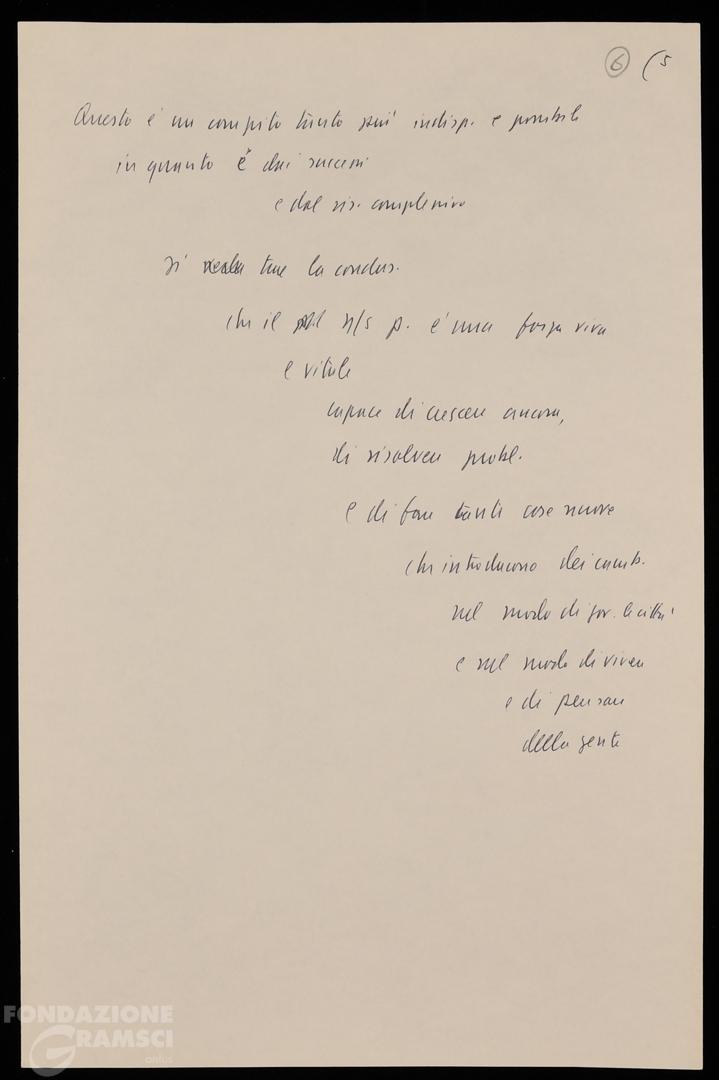 6 (5
Questo è un compito tanto più indisp. e possibile
in quanto è dai successi
e dal ris. complessivo
si trae la conclus.
che il n/s p. è una forza viva
e vitale
capace di crescere ancora,
di risolvere probl.
e di fare tante cose nuove
che introducono dei camb.
nel modo di gov. le città
e nel modo di vivere
e di pensare
della gente
FONDAZIONE
GRAMSCI
onlus